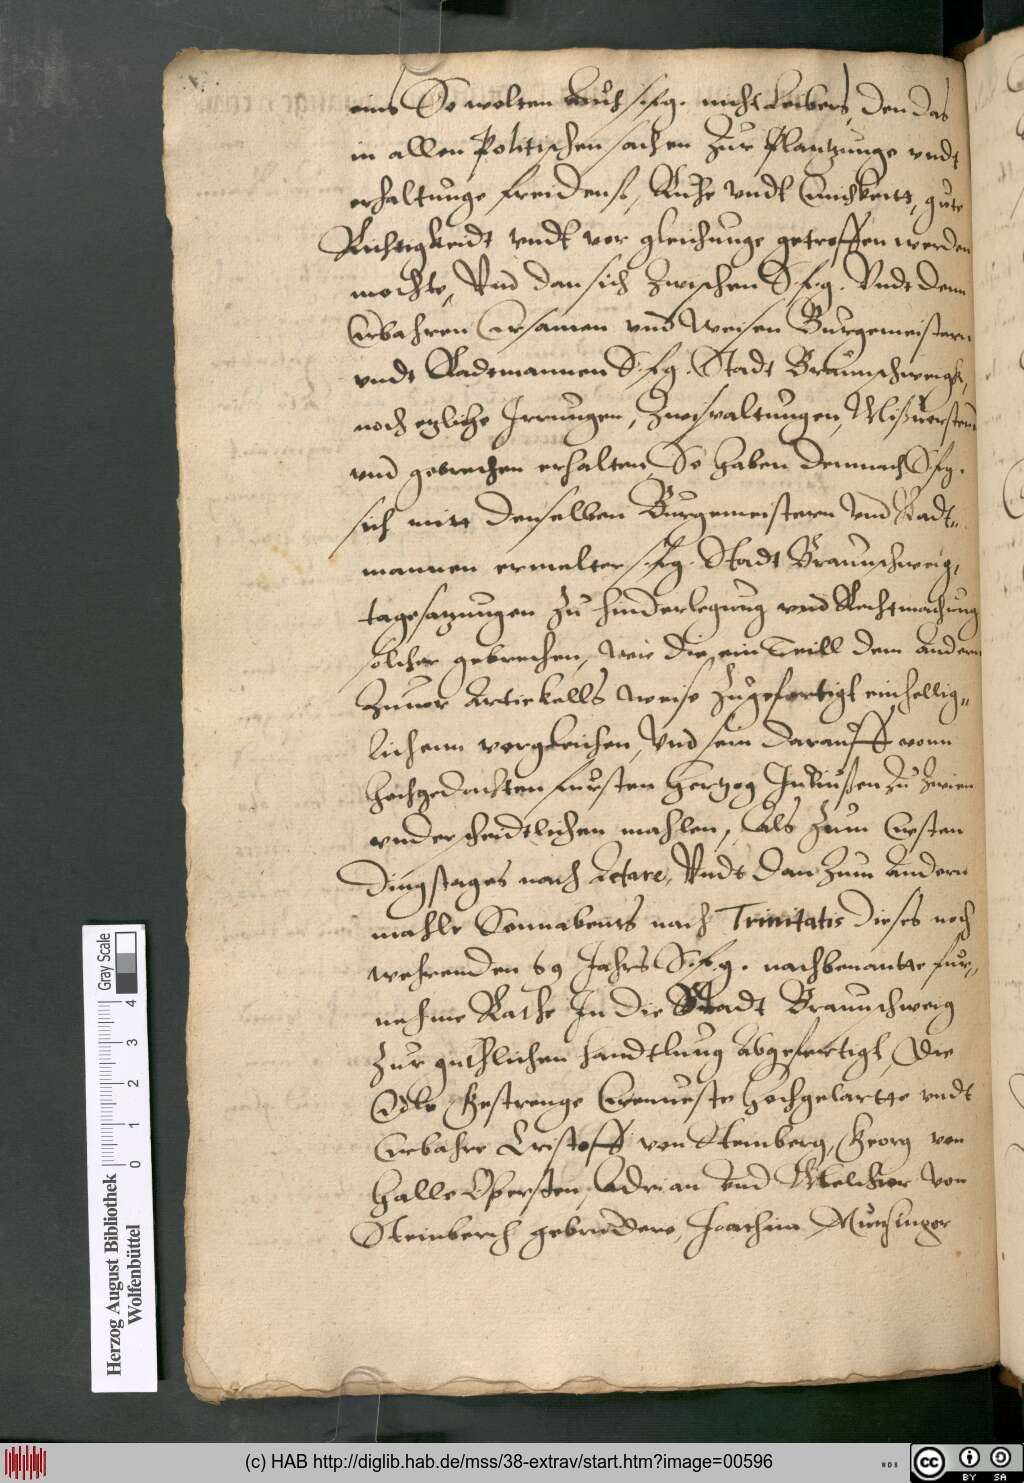 eins So wolten auch s. f. g. nicht Liebers, den das
in allen Politischen sachen Zur Plantzunge vndt
erhaltunge freidenß, Ruhe vndt Einickeitt, gute
Richtigkeidt vndt vor gleichunge getroffen werden
mochte, Vnd dan sich Zwischen S. f. g. Vndt denn
Erbahren Ersamen vnd Weisen Burgemeistern
vndt Radtmannen S. f. g. Stadt Braunschweigk,
noch etzliche Irrungen, Zweispaltungen, Mißuerstend
vnd gebrechen erhalten So haben demnach S. f. g.
sich mitt denselben Burgemeistern vnd Radt-
mannen ermelter s. f. g. Stadt Braunschweig,
tagesatzungen Zu hinderlegung vnd Rechtmachung
solcher gebrechen, wie die ein Teill dem andern
Zuuor Artickells weise Zugefertigt einhellig-
lichenn vergleichen, Vnd sein darauff vonn
hochgedachten fursten Hertzog Juliußen Zu Zwien
vnderscheidtlichen mahlen, Als Zum Ersten
Dingstages nach Letare, Vndt dan Zum Andern
mahle Sonnabents nach Trinitatis dieses noch
wehrenden 69 Jahrs S. f. g. nachbenantte fur-
nehme Rathe In die Stadt Braunschweig
Zur guthlichen handtlung abgefertigt, Die
Edle Gestrenge Ernueste Hochgelartte vndt
Erbahre Cristoff von Steinberg, Georg von
Halle Obersten, Adrian vnd Melchior von
Steinberch gebrudere, Joachim Munsinger
Gray Scale
0 1 2 3 4
Herzog August Bibliothek
Wolfenbüttel
(c) HAB http://diglib.hab.de/mss/38-extrav/start.htm?image=00596
WDB
cc BY SA